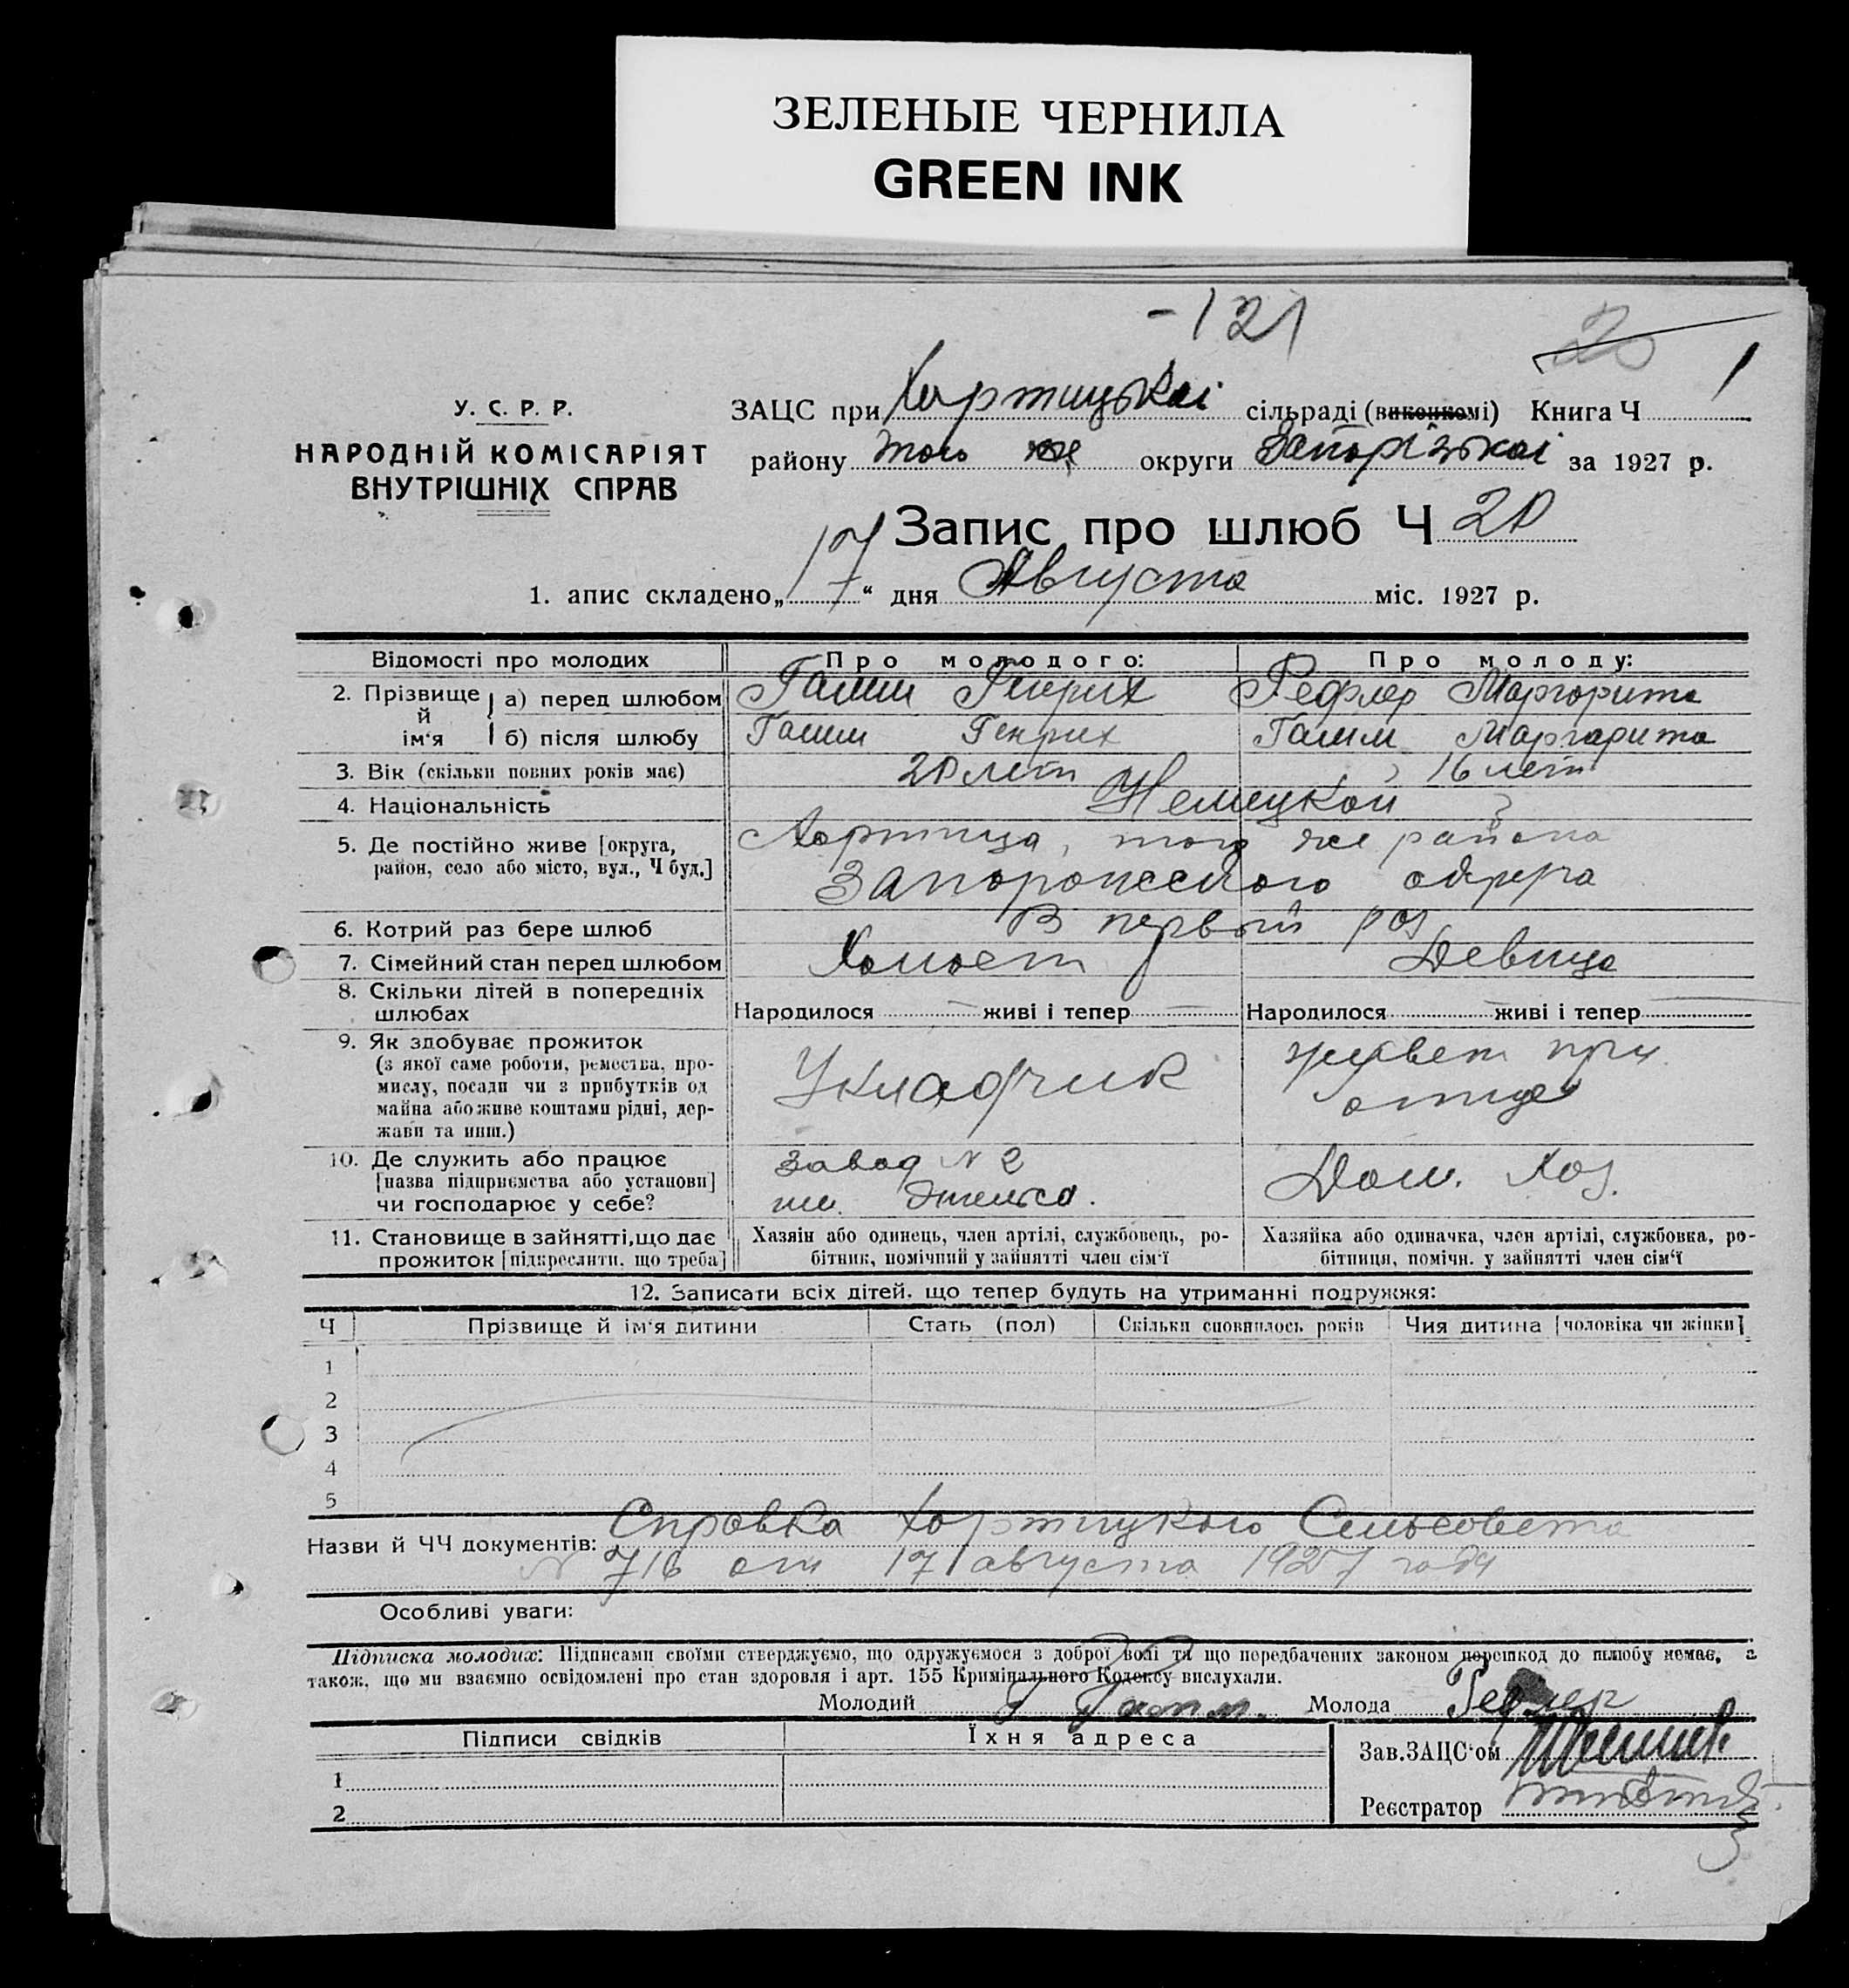 ЗЕЛЕНЫЕ ЧЕРНИЛА
GREEN INK
-121
20
1
У. С. Р. Р.
НАРОДНІЙ КОМІСАРІЯТ
ВНУТРІШНІХ СПРАВ
ЗАЦС при Хортицькоі сільраді (виконкомі) Книга Ч
району того же округи Запорізькоі за 1927 р.
Запис про шлюб Ч 20
1. апис складено „17“ дня Августа міс. 1927 р.
Відомості про молодих Про молодого: Про молоду:
2. Прізвище й ім‘я а) перед шлюбом Гамм Генрих Рефлер Маргорита
б) після шлюбу Гамм Генрих Гамм Маргарита
3. Вік (скільки повних років має) 20 лет 16 лет
4. Національність Немецкой
5. Де постійно живе [округа, Хортица, того же района
район, село або місто, вул., Ч буд.] Запорожского округа
6. Котрий раз бере шлюб В первый раз
7. Сімейний стан перед шлюбом Холост Девица
8. Скільки дітей в попередніх
шлюбах Народилося живі і тепер Народилося живі і тепер
9. Як здобуває прожиток
(з якої саме роботи, ремества, про-
мислу, посади чи з прибутків од
майна або живе коштами рідні, дер-
жави та инш.)
Укладчик
живет при
отце
10. Де служить або працює
[назва підприємства або установи]
чи господарює у себе?
Завод N 2
им. Энгельса.
Дом. Хоз.
11. Становище в зайнятті, що дає
прожиток [підкреслити, що треба]
Хазяін або одинець, член артілі, службовець, ро-
бітник, помічний у зайнятті член сім‘ї
Хазяйка або одиначка, член артілі, службовка, ро-
бітниця, помічн. у зайнятті член сім‘ї
12. Записати всіх дітей, що тепер будуть на утриманні подружжя:
Ч Прізвище й ім‘я дитини Стать (пол) Скільки сповнилось років Чия дитина [чоловіка чи жінки]
1
2
3
4
5
Назви й ЧЧ документів: Справка Хортицкого Сельсовета
N 716 от 17 августа 1927 года
Особливі уваги:
Підписка молодих: Підписами своїми стверджуємо, що одружуємося з доброї волі та що передбачених законом перешкод до шлюбу немає, а
також, що ми взаємно освідомлені про стан здоровля і арт. 155 Кримінального Кодексу вислухали.
Молодий Г Гамм. Молода Рефлер
Підписи свідків Їхня адреса
Зав. ЗАЦС‘ом
1
Реєстратор
2